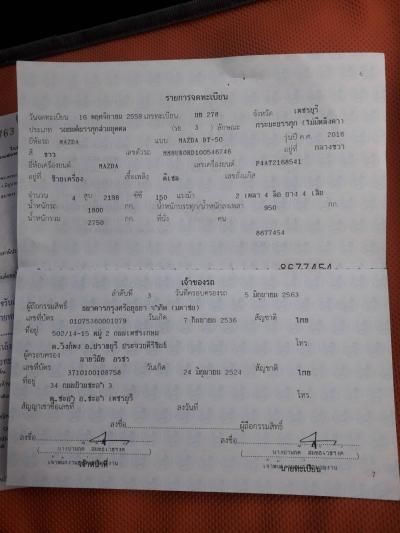 รายการจดทะเบียน
วันจดทะเบียน 16 พฤศจิกายน 2558 เลขทะเบียน บษ 278 จังหวัด เพชรบุรี
ประเภท รถยนต์บรรทุกส่วนบุคคล (รย 3 ) ลักษณะ กระบะบรรทุก (ไม่มีหลังคา)
ยี่ห้อรถ MAZDA แบบ MAZDA BT-50 รุ่นปี ค.ศ. 2016
สี ขาว เลขตัวรถ อยู่ที่ กลางขวา
ยี่ห้อเครื่องยนต์ MAZDA เลขเครื่องยนต์ P4AT2168541
อยู่ที่ ซ้ายเครื่อง เชื้อเพลิง ดีเซล เลขถังแก๊ส
จำนวน 4 สูบ 2198 ซีซี 150 แรงม้า 2 เพลา 4 ล้อ ยาง 4 เส้น
น้ำหนักรถ 1800 กก. น้ำหนักบรรทุก/น้ำหนักลงเพลา 950 กก.
น้ำหนักรวม 2750 กก. ที่นั่ง คน
8677454
8677454
เจ้าของรถ
ลำดับที่ 3 วันที่ครอบครองรถ 5 มิถุนายน 2563
ผู้ถือกรรมสิทธิ์ ธนาคารกรุงศรีอยุธยา จำกัด (มหาชน)
เลขที่บัตร 0107536001079 วันเกิด 7 กันยายน 2536 สัญชาติ ไทย
ที่อยู่ 502/14-15 หมู่ 2 ถนนเพชรเกษม
ต.วังก์พง อ.ปราณบุรี ประจวบคีรีขันธ์ โทร.
ผู้ครอบครอง
เลขที่บัตร 3710100108758 วันเกิด 24 มิถุนายน 2524 สัญชาติ ไทย
ที่อยู่ 34 ถนนบ้านชะอำ 3
ต.ชะอำ อ.ชะอำ เพชรบุรี โทร.
สัญญาเช่าซื้อเลขที่ ลงวันที่
ลงชื่อ ผู้ถือกรรมสิทธิ์
ลงชื่อ ลงชื่อ
เจ้าหน้าที่ นายทะเบียน
7